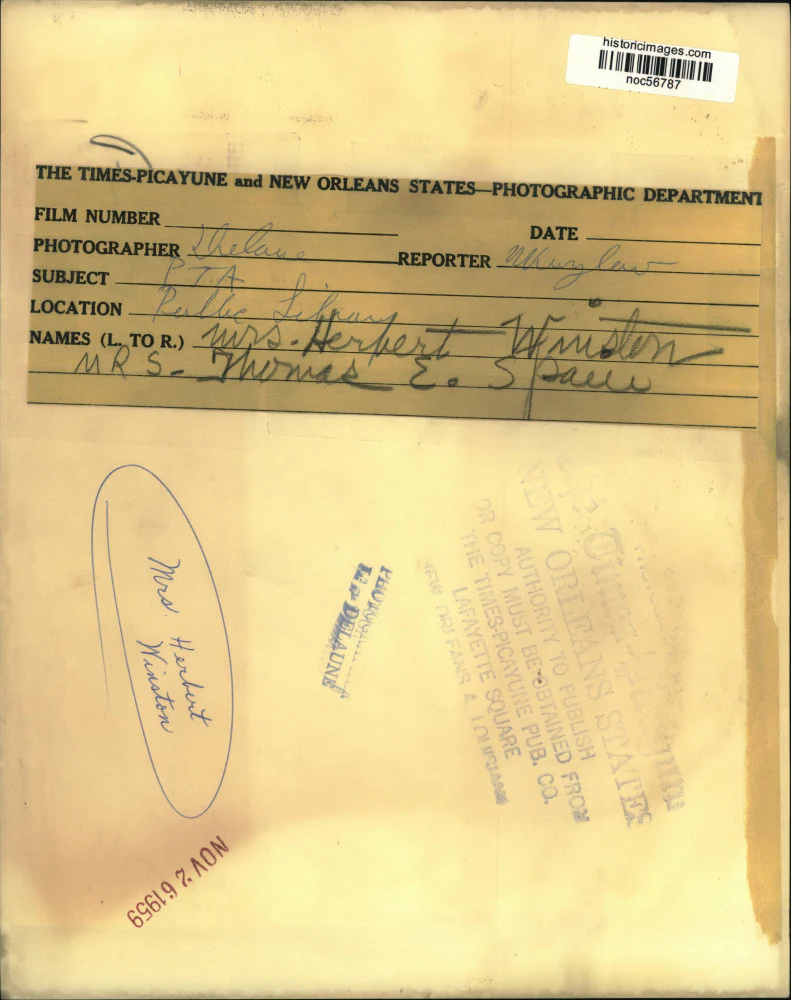 historicimages.com
noc56787
THE TIMES-PICAYUNE and NEW ORLEANS STATES—PHOTOGRAPHIC DEPARTMENT
FILM NUMBER
DATE
PHOTOGRAPHER Delaune
REPORTER
SUBJECT PTA
LOCATION Public Library
NAMES (L. TO R.) Mrs. Herbert Winston
MRS. Thomas E.
Mrs. Herbert
Winston
L. P. DELAUNE
NEW ORLEANS STATES
AUTHORITY TO PUBLISH
OR COPY MUST BE OBTAINED FROM
THE TIMES-PICAYUNE PUB. CO.
LAFAYETTE SQUARE
NEW ORLEANS 4, LOUISIANA
NOV 26 1959